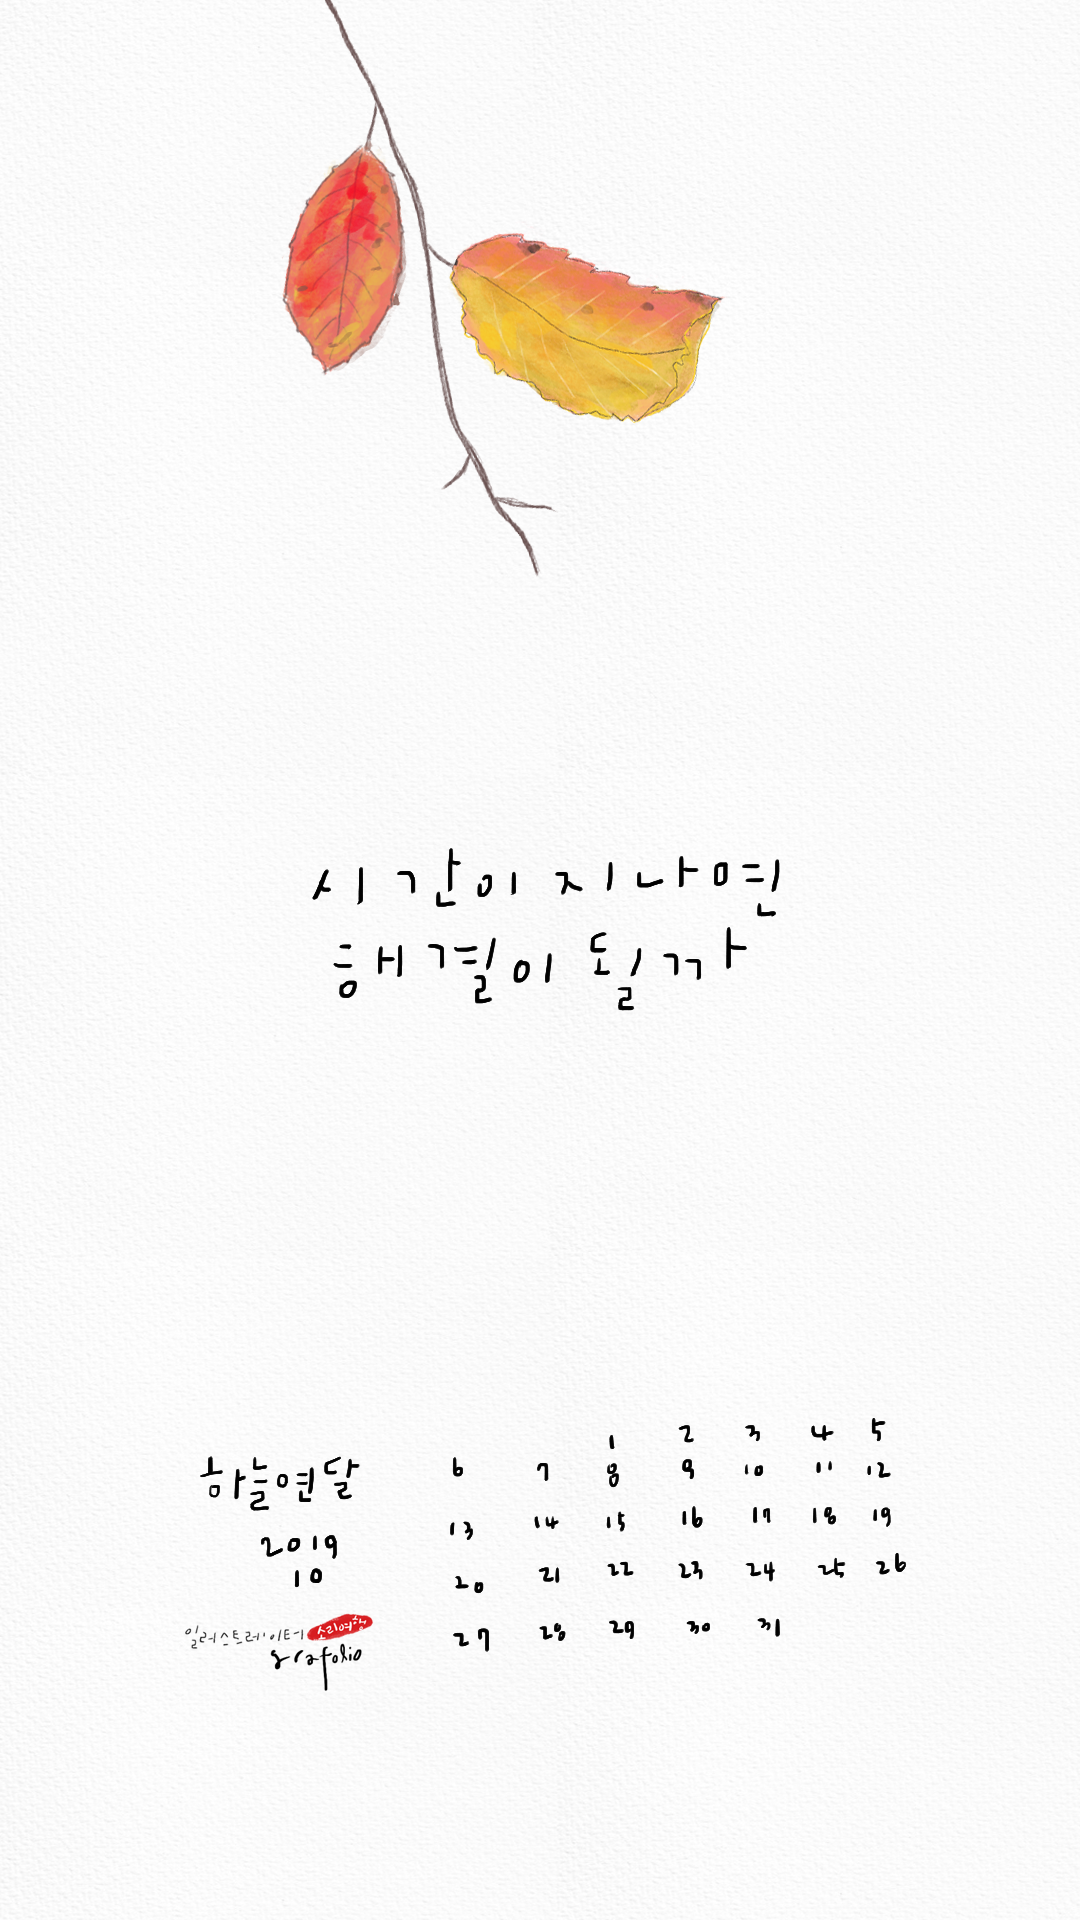 시간이 지나면
해결이 될까
하늘연달
2019
10
일러스트레이터 소리여행
grafolio
1 2 3 4 5
6 7 8 9 10 11 12
13 14 15 16 17 18 19
20 21 22 23 24 25 26
27 28 29 30 31